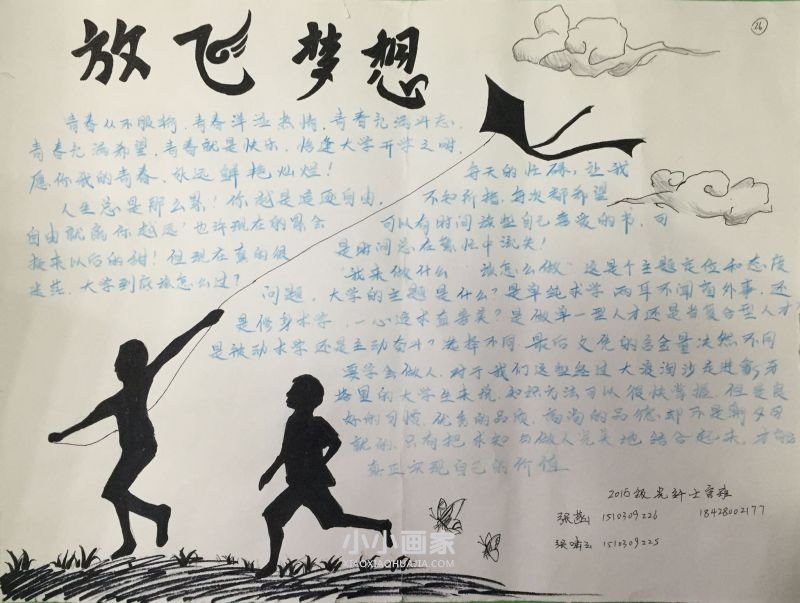 放飞梦想
26
青春从不服输,青春洋溢热情,青春充满斗志,
青春充满希望,青春就是快乐,恰逢大学开学之时,
愿你我的青春,永远鲜艳灿烂!
人生总是那么累!你越是追逐自由,
自由就离你越远!也许现在的累会
换来以后的甜!但现在真的很
迷茫,大学到底该怎么过?
每天的忙碌,让我
不知所措,每次都希望
可以有时间放松自己喜爱的书,可
是时间总在繁忙中流失!
“我来做什么 该怎么做”这是个主题定位和态度
问题,大学的主题是什么?是单纯求学,两耳不闻窗外事,还
是修身求学,一心追求真善美?是做单一型人才还是当复合型人才
是被动求学还是主动奋斗?选择不同,最后文凭的含金量决然不同
要学会做人,对于我们这些经过大浪淘沙走进象牙
塔里的大学生来说,知识方法可以很快掌握,但是良
好的习惯,优秀的品质,高尚的品德却不是朝夕可
就的,只有把求知与做人完美地结合起来,才能
真正实现自己的价值
2015级
张 1510309226 18428002177
张啸 1510309225
小小画家
XIAOXIAOHUAJIA.COM